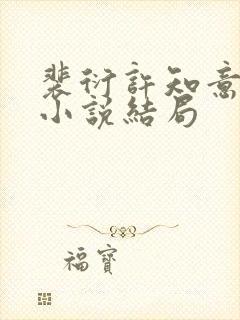 裴衍許知意
小說結局
福寶